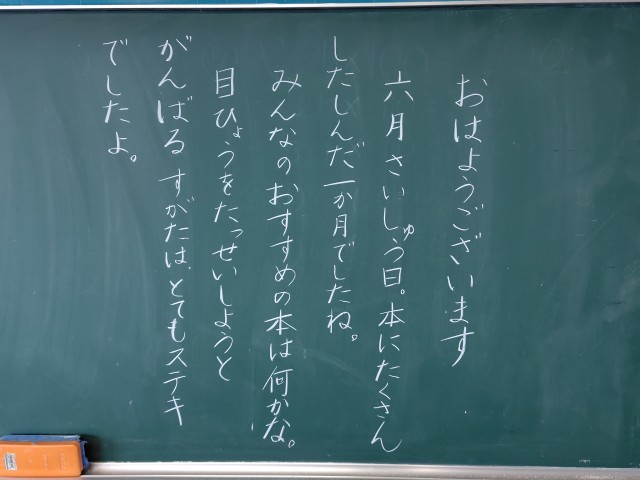 おはようございます
六月さいしゅう日。本にたくさん
したしんだ一か月でしたね。
みんなのおすすめの本は何かな。
目ひょうをたっせいしようと
がんばるすがたは、とてもステキ
でしたよ。